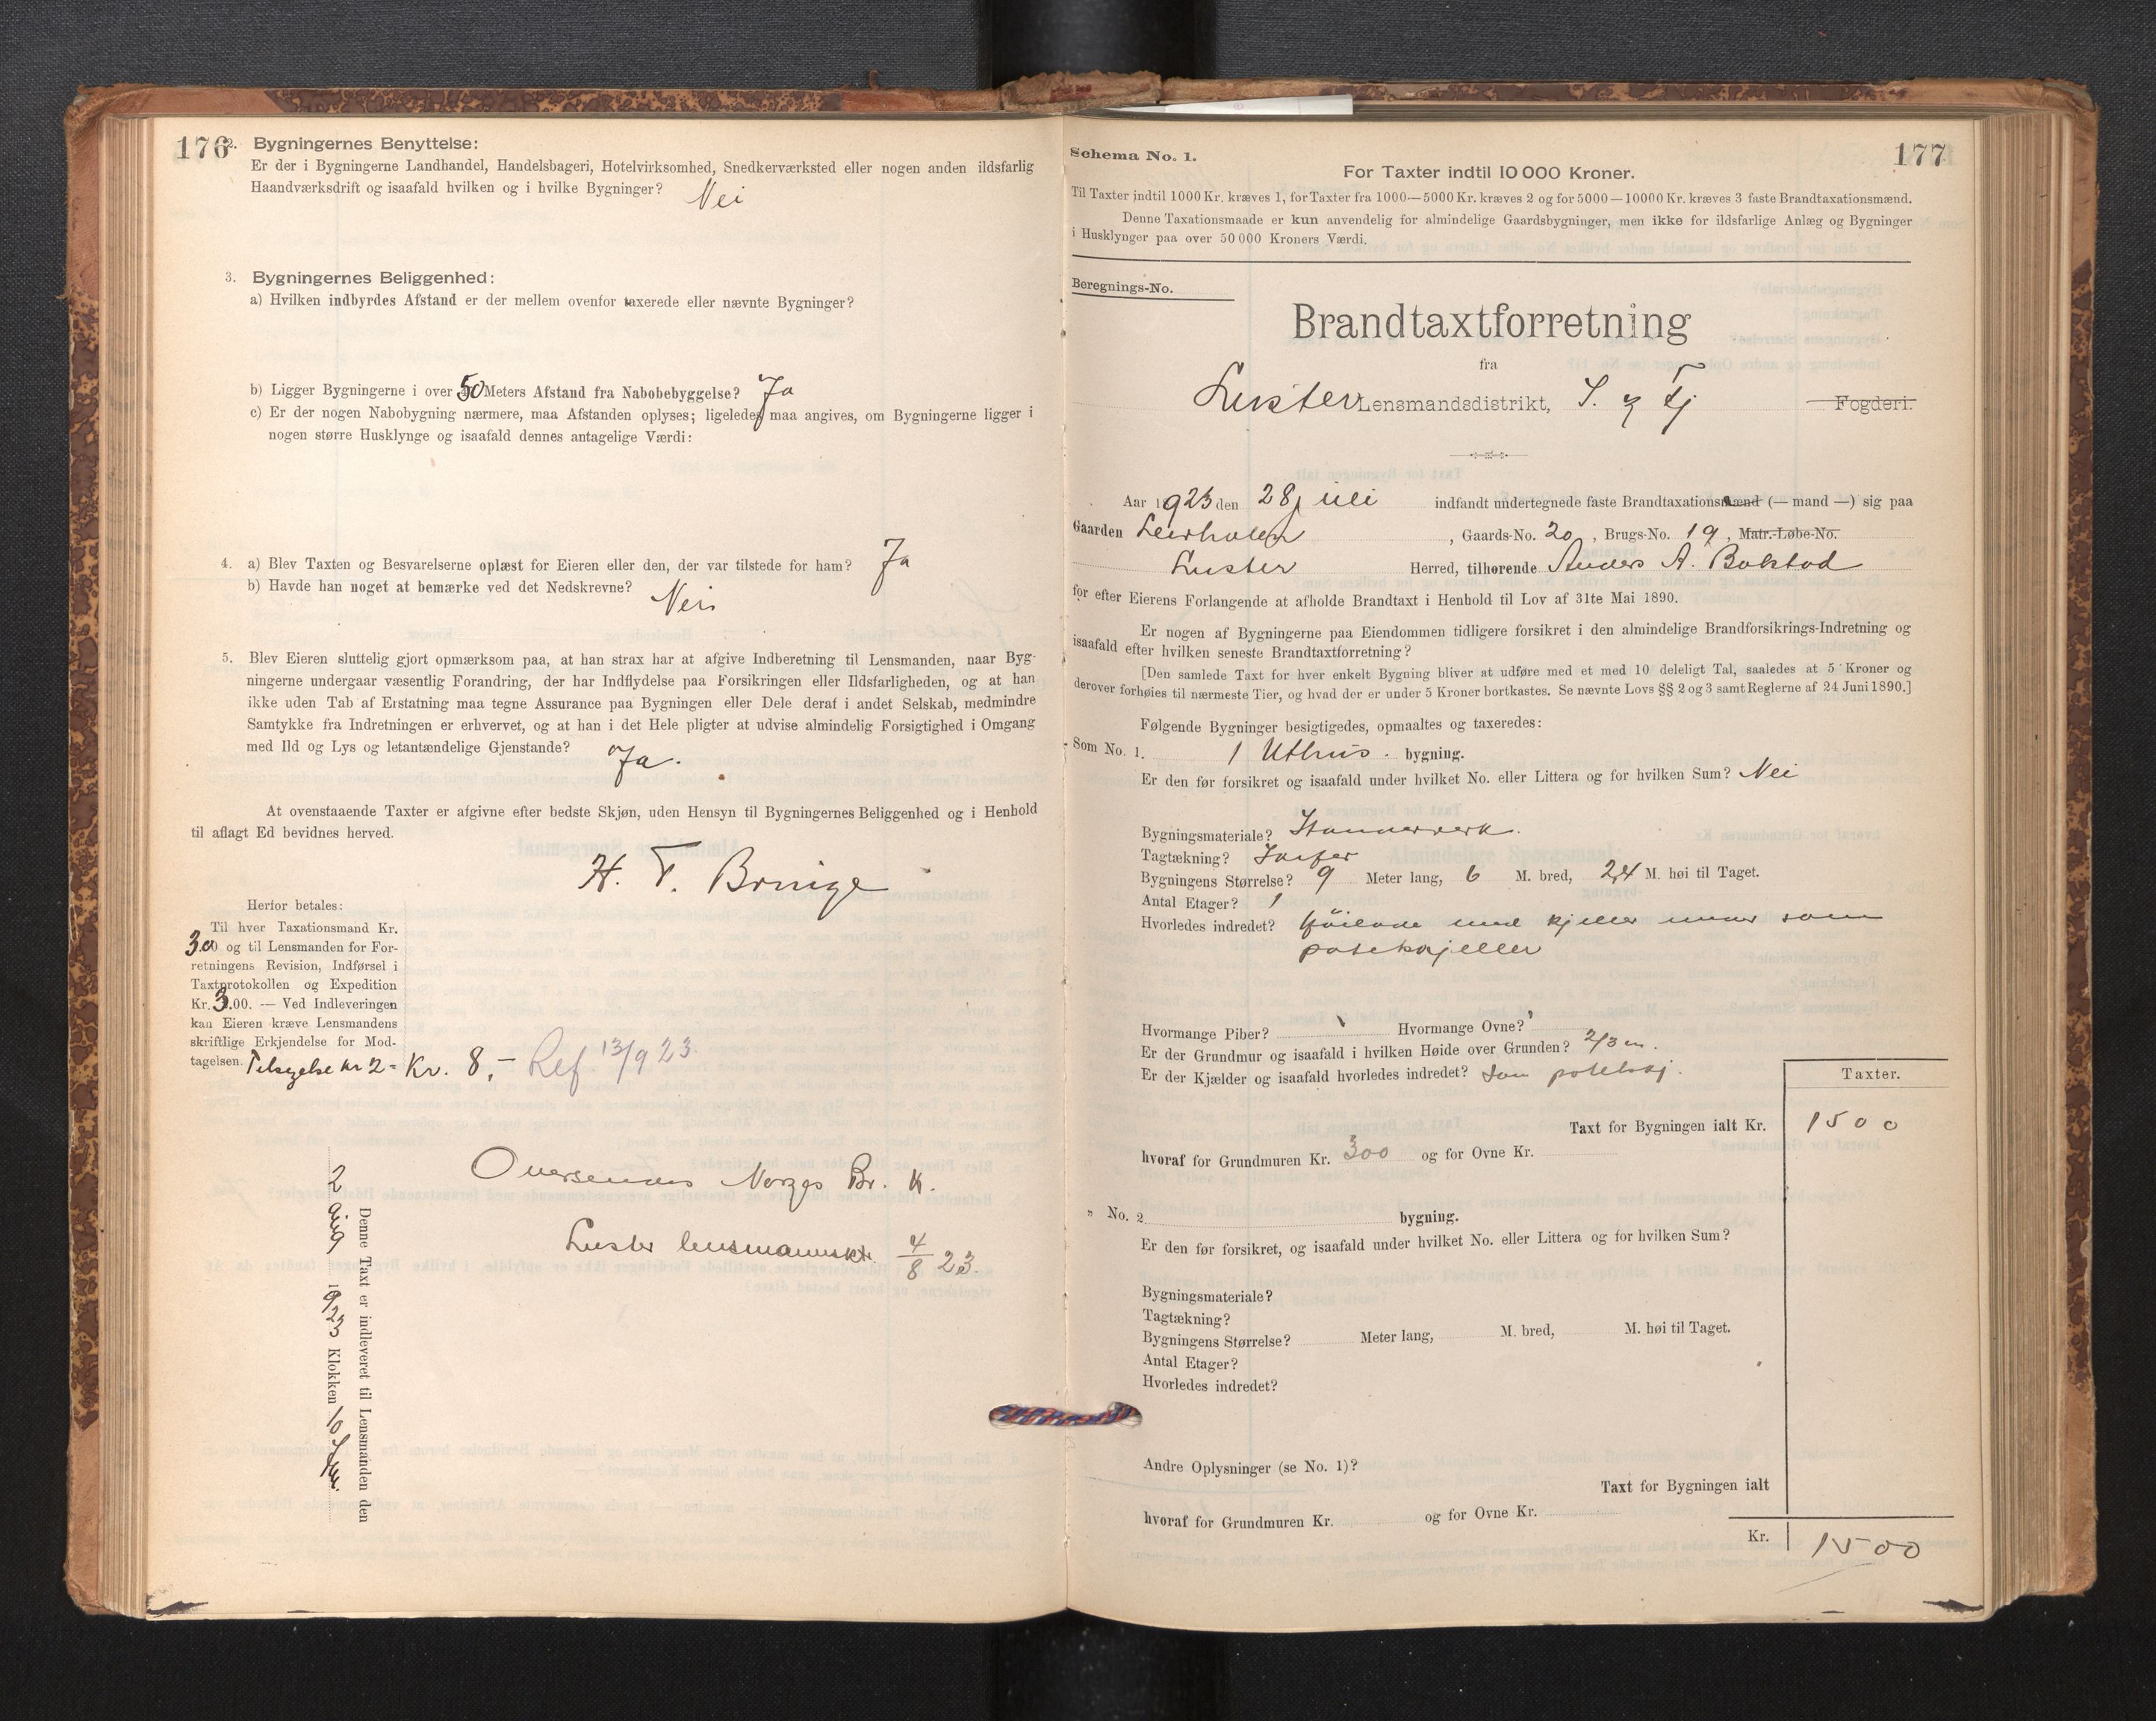 176
2. Bygningernes Benyttelse:
Er der i Bygningerne Landhandel, Handelsbageri, Hotelvirksomhed, Snedkerværksted eller nogen anden ildsfarlig
Haandværksdrift og isaafald hvilken og i hvilke Bygninger? Nei
3. Bygningernes Beliggenhed:
a) Hvilken indbyrdes Afstand er der mellem ovenfor taxerede eller nævnte Bygninger?
b) Ligger Bygningerne i over 50 Meters Afstand fra Nabobebyggelse? Ja
c) Er der nogen Nabobygning nærmere, maa Afstanden oplyses; ligeledes maa angives, om Bygningerne ligger i
nogen større Husklynge og isaafald dennes antagelige Værdi:
4. a) Blev Taxten og Besvarelserne oplæst for Eieren eller den, der var tilstede for ham? Ja
b) Havde han noget at bemærke ved det Nedskrevne? Nei
5. Blev Eieren sluttelig gjort opmærksom paa, at han strax har at afgive Indberetning til Lensmanden, naar Byg-
ningerne undergaar væsentlig Forandring, der har Indflydelse paa Forsikringen eller Ildsfarligheden, og at han
ikke uden Tab af Erstatning maa tegne Assurance paa Bygningen eller Dele deraf i andet Selskab, medmindre
Samtykke fra Indretningen er erhvervet, og at han i det Hele pligter at udvise almindelig Forsigtighed i Omgang
med Ild og Lys og letantændelige Gjenstande? Ja.
At ovenstaaende Taxter er afgivne efter bedste Skjøn, uden Hensyn til Bygningernes Beliggenhed og i Henhold
til aflagt Ed bevidnes herved.
H. T. Bringe
Herfor betales:
Til hver Taxationsmand Kr.
3.00 og til Lensmanden for For-
retningens Revision, Indførsel i
Taxtprotokollen og Expedition
Kr. 3.00. — Ved Indleveringen
kan Eieren kræve Lensmandens
skriftlige Erkjendelse for Mod-
tagelsen. kr 2 = Kr. 8,- 13/9 23
Oversendes Norges Br. K.
Luster lensmannskt. 4/8 23.
Denne Taxt er indleveret til Lensmanden den
2 aug 1923 Klokken 10
177
Schema No. 1.
For Taxter indtil 10 000 Kroner.
Til Taxter indtil 1000 Kr. kræves 1, for Taxter fra 1000—5000 Kr. kræves 2 og for 5000—10000 Kr. kræves 3 faste Brandtaxationsmænd.
Denne Taxationsmaade er kun anvendelig for almindelige Gaardsbygninger, men ikke for ildsfarlige Anlæg og Bygninger
i Husklynger paa over 50 000 Kroners Værdi.
Beregnings-No.
Brandtaxtforretning
fra
Luster Lensmandsdistrikt, S. og Fj Fogderi.
Aar 1923 den 28 juli indfandt undertegnede faste Brandtaxationsmænd (— mand —) sig paa
Gaarden , Gaards-No. 20, Brugs-No. 19, Matr.-Løbe-No.
Luster Herred, tilhørende Anders A. Bolstad
for efter Eierens Forlangende at afholde Brandtaxt i Henhold til Lov af 31te Mai 1890.
Er nogen af Bygningerne paa Eiendommen tidligere forsikret i den almindelige Brandforsikrings-Indretning og
isaafald efter hvilken seneste Brandtaxtforretning?
[Den samlede Taxt for hver enkelt Bygning bliver at udføre med et med 10 deleligt Tal, saaledes at 5 Kroner og
derover forhøies til nærmeste Tier, og hvad der er under 5 Kroner bortkastes. Se nævnte Lovs §§ 2 og 3 samt Reglerne af 24 Juni 1890.]
Følgende Bygninger besigtigedes, opmaaltes og taxeredes:
Som No. 1. 1 Uthus. bygning.
Er den før forsikret og isaafald under hvilket No. eller Littera og for hvilken Sum? Nei
Bygningsmateriale? Stavverk.
Tagtækning?
Bygningens Størrelse? 9 Meter lang, 6 M. bred, 2,4 M. høi til Taget.
Antal Etager? 1
Hvorledes indredet? med kjeller under som
potetkjeller
Hvormange Piber? Hvormange Ovne?
Er der Grundmur og isaafald i hvilken Høide over Grunden? 2/3 m.
Er der Kjælder og isaafald hvorledes indredet? som potetkj.
Taxter.
Taxt for Bygningen ialt Kr. 1500
hvoraf for Grundmuren Kr. 300 og for Ovne Kr.
„ No. 2 bygning.
Er den før forsikret, og isaafald under hvilket No. eller Littera og for hvilken Sum?
Bygningsmateriale?
Tagtækning?
Bygningens Størrelse? Meter lang, M. bred, M. høi til Taget.
Antal Etager?
Hvorledes indredet?
Andre Oplysninger (se No. 1)?
Taxt for Bygningen ialt
hvoraf for Grundmuren Kr. og for Ovne Kr.
Kr. 1500